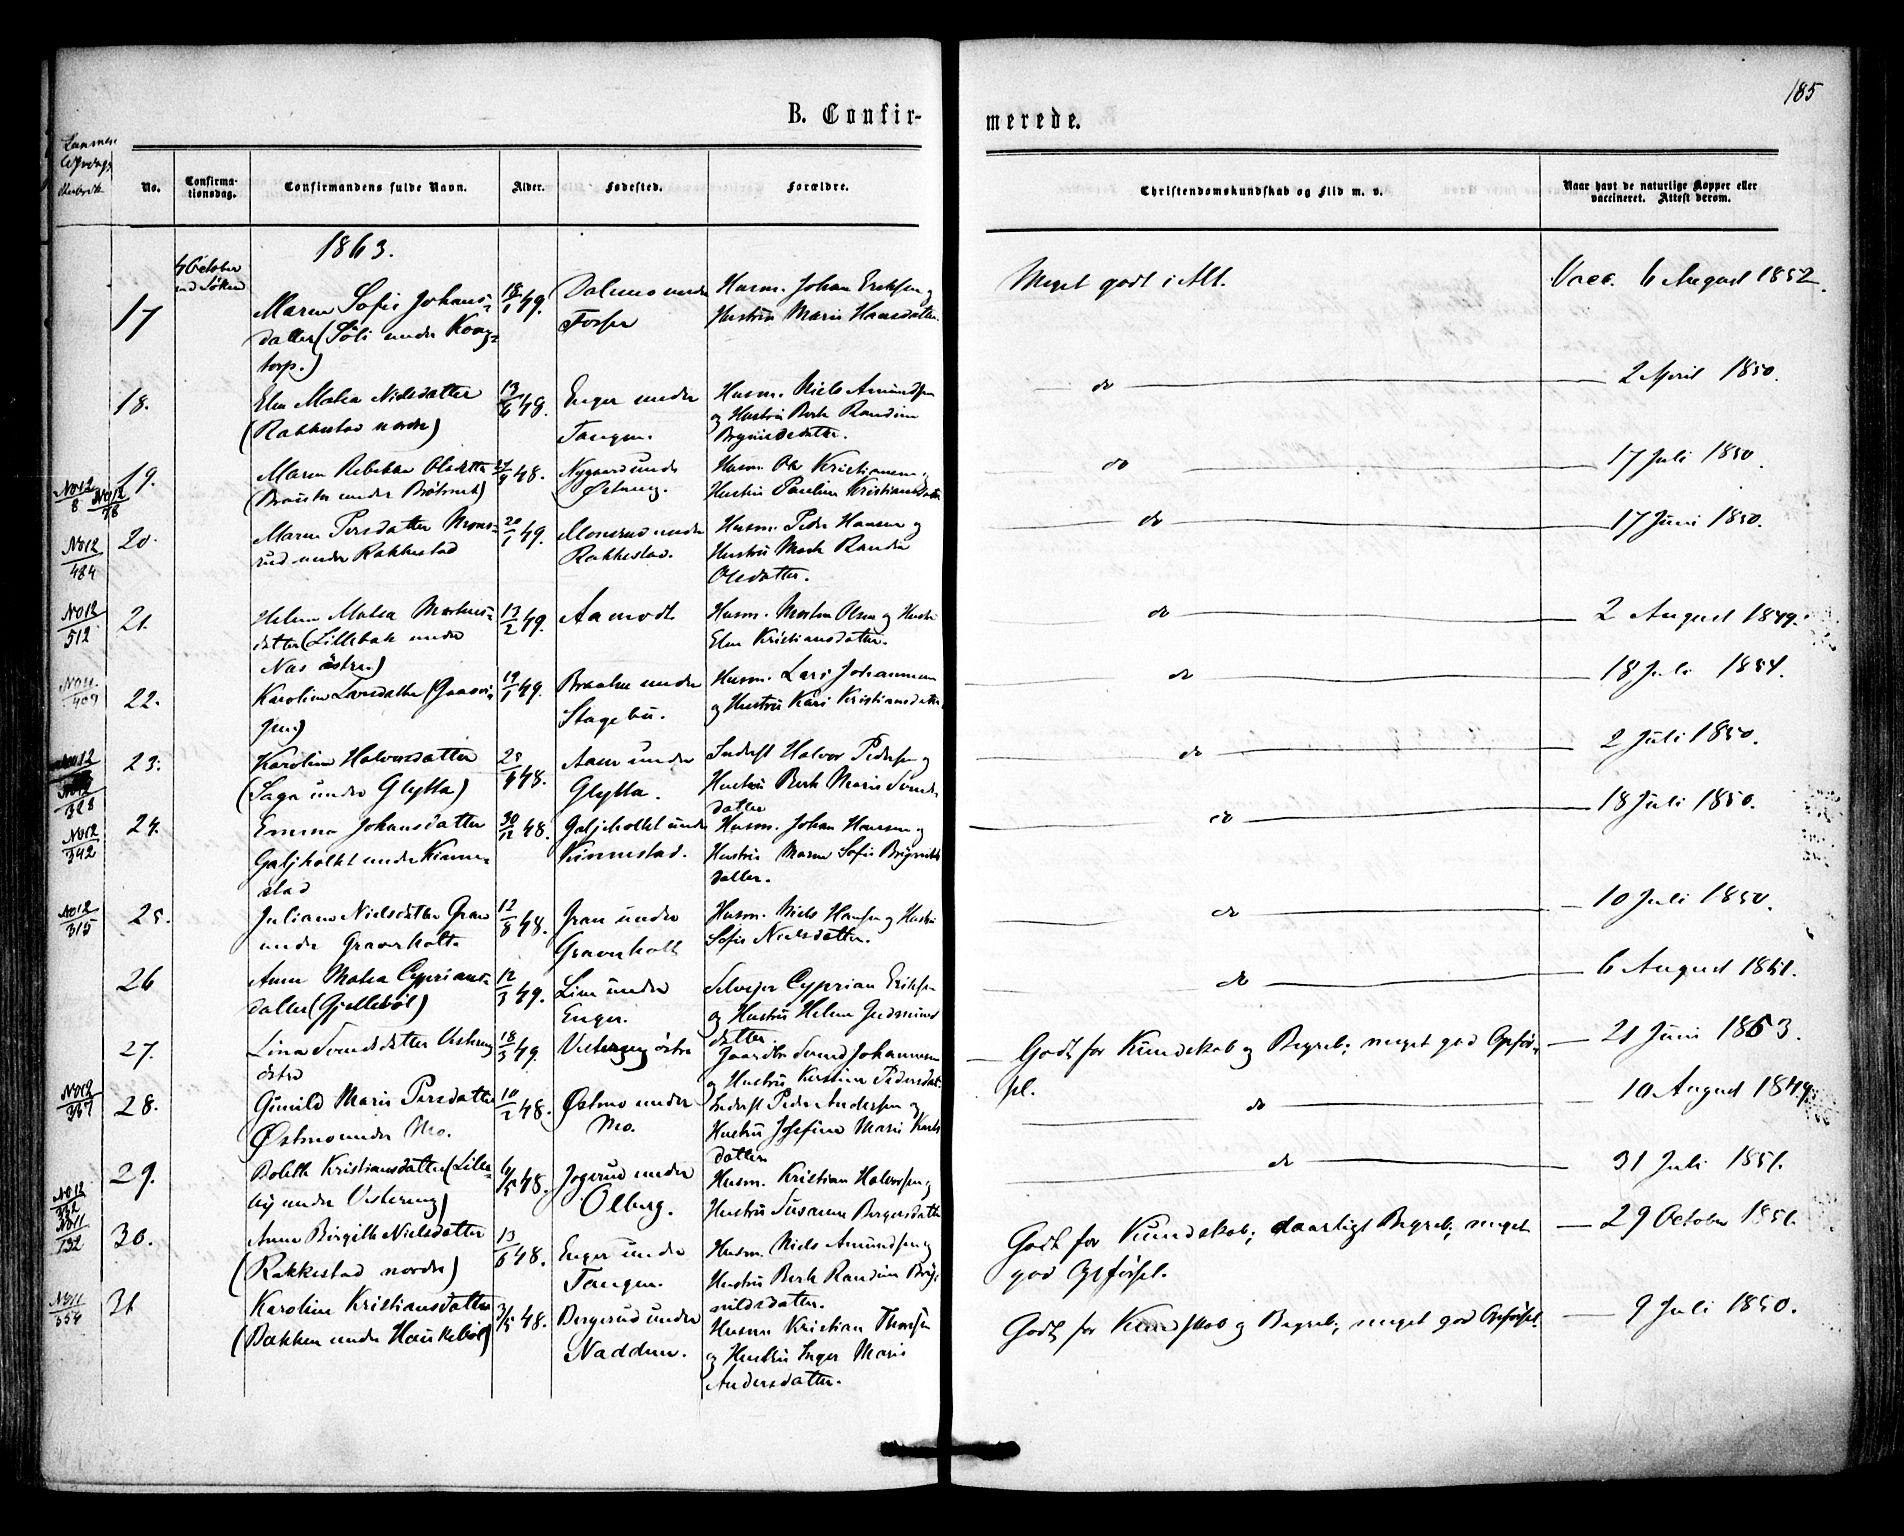 185
B. Confir-
merede.
No.
Confirma-
tionsdag.
Confirmandens fulde Navn.
Alder.
Fødested.
Forældre.
Christendomskundskab og Flid m. v.
Naar havt de naturlige Kopper eller
vaccineret. Attest derom.
1863.
4 October
17
Maren Sofie Johans-
datter (Sōli under Kong-
torp.)
18/1 49.
under
Fosser
Husm. Johan Eriksen og
Hustru Marie Hansdatter.
Meget godt i Alt.
Vacc. 6 August 1852.
18.
Elen Matea Nielsdatter
(Rakkestad nordre)
13/6 48.
Enger under
Tangen.
Husm. Niels Amundsen
og Hustru Berte Randine
do
2 April 1850.
No 12/8
19.
Maren Rebekka Olsdatter
48.
Nygaard under
Husm. Ole Kristiansen og
Hustru Pauline Kristiansdatter
do
17 Juli 1850.
No 12/484
20.
Maren Persdatter Mons-
rud under Rakkestad
20/1 49.
Monsrud under
Rakkestad.
Husm. Peder Hansen og
Hustru Marte Randie
Olsdatter.
do
17 Juni 1850.
No 12/512
21.
Helene Matea Martins-
datter (Lillebak under
Nas östre)
13/2 49.
Aamodt
Husm. Martin Olsen og Hustru
Elen Kristiansdatter.
do
2 August 1849.
22.
Karoline Larsdatter
19/1 49.
Braaten under
Stagebu.
Husm. Lars Johannesen
og Hustru Kari Kristiansdatter
do
18 Juli 1851.
No 12/328
23.
Karoline Halvorsdatter
(Saga under Glytta)
48.
Aasen under
Glytta.
Inderst Halvor Pedersen og
Hustru Berte Marie Svends
datter
do
2 Juli 1850.
No 12/342
24.
Emma Johansdatter
Galjeholtet under Kinne-
stad
30/12 48.
Galjeholtet under
Kinnestad.
Husm. Johan Hansen og
Hustru Maren Sofie
datter.
do
18 Juli 1850.
No 12/315
25.
Juliane Nielsdatter Gran
under Graverholt
12/8 48.
Gran under
Graverholt
Husm. Niels Hansen og Hustru
Sofie Nielsdatter.
do
10 Juli 1850.
26
Anne Matea Cyprians-
datter (Gjellebøl)
12/3 49.
Lien under
Enger.
Selvejer Cyprian Eriksen
og Hustru Helene Gudmunds
datter
do
6 August 1851.
27.
Lina Svendsdatter Vestereng
östre
18/3 49.
Vestereng östre
Gaardbr Svend Johannesen
og Hustru Kirstine Pedersdat.
Godt for Kundskab og Begreb; meget god Opfør-
sel.
21 Juni 1863.
No 12/337
28.
Gunild Marie Persdatter
Østmo under Mo.
48.
Østmo under
Mo.
Inderst Peder Andersen og
Hustru Josefine Marie Karls
datter
do
10 August 1849.
No 12/332
29.
Bolette Kristiansdatter (Lille-
by under Vestereng)
48.
Jogerud under
Olberg.
Husm. Kristian Halvorsen og
Hustru Susanne Bergersdatter
do
31 Juli 1851.
No 11/132
30.
Anne Birgitte Nielsdatter
(Rakkestad nordre)
13/6 48.
Enger under
Tangen.
Husm. Niels Amundsen og
Hustru Berte Randine Bryn-
nildsdatter.
Godt for Kundskab; daarligt Begreb; meget
god Opførsel.
29 October 1851.
No 11/354
31
Karoline Kristiansdatter
(Bakken under Haukebøl)
48.
Bergerud under
Naddum.
Husm. Kristian Thorsen
og Hustru Inger Marie
Andersdatter.
Godt for Kundskab og Begreb; meget god Opførsel.
9 Juli 1850.